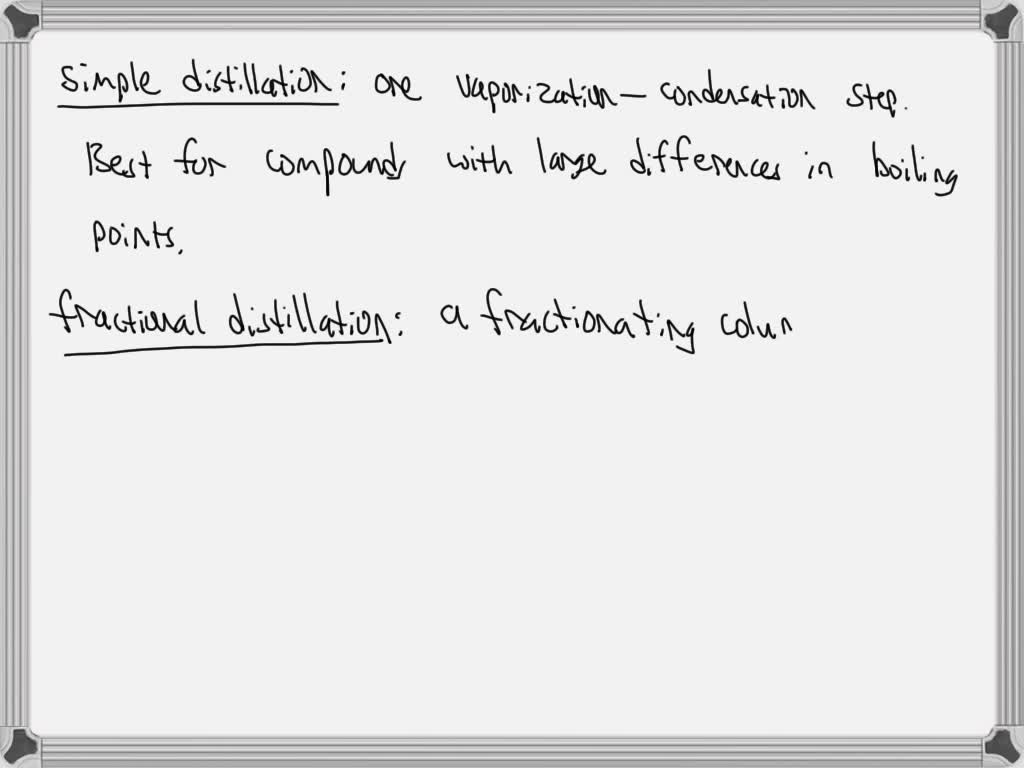 simple distillation: one vaporization – condensation step.
Best for compounds with large differences in boiling
points.
fractional distillation: a fractionating colun